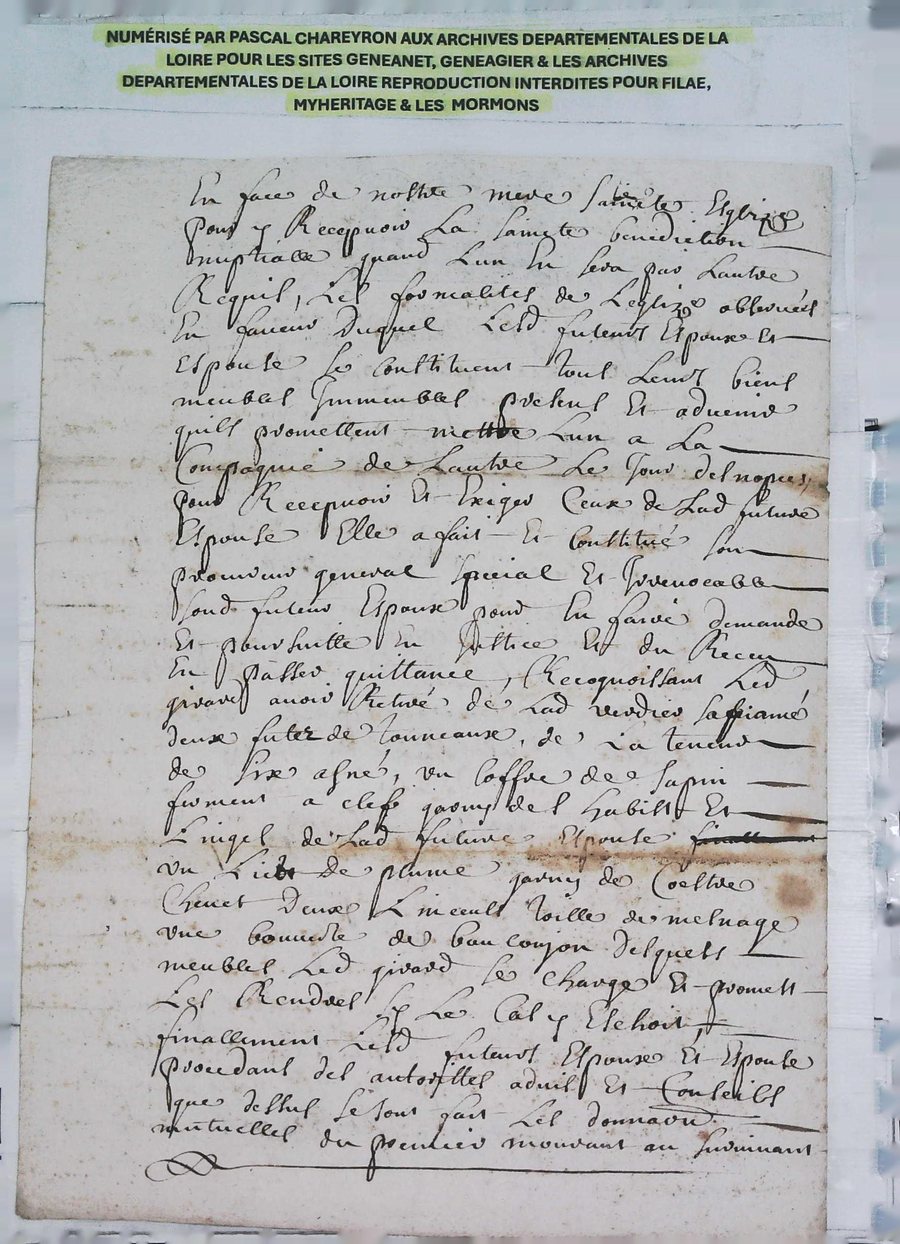 NUMÉRISÉ PAR PASCAL CHAREYRON AUX ARCHIVES DEPARTEMENTALES DE LA
LOIRE POUR LES SITES GENEANET, GENEAGIER & LES ARCHIVES
DEPARTEMENTALES DE LA LOIRE REPRODUCTION INTERDITES POUR FILAE,
MYHERITAGE & LES MORMONS
En face de nostre mere Saincte Esglize
pour y Recepuoir La saincte benediction
nuptialle quand Lun En sera par Lautre
Requis, Les formalités de Leglize obseruées
En faueur duquel Lesd futeurs Espoux Et
Espouse se constituent tous Leurs biens
meubles Immeubles presens Et aduenir
quils promettent mettre Lun a La
Compagnie de Lautre Le Jour des nopces,
pour Recepuoir Et Exiger Ceux de Lad future
Espouse Elle a fait Et Constitué son
procureur general special Et Irreuocable
sond futeur Espoux pour En faire demande
Et poursuitte En Justice Et du Receu
En passer quittance, Recognoissant Led
girard auoir Retiré de Lad verdier sa fiamé
deux futez de Tonneaux, de La teneur
de six asné, vn Coffre de sapin
fermant a clef garny des habist Et
Linges de Lad future Espouse
vn Lict de plume garny de Coeltre
Cheuet deux Linceuls toille de mesnage
vne de desquels
meubles Led girard se Charge Et promest
Les Rendres sy Le Cas y Eschoit,
finallement Lesd futeurs Espoux Et Espouse
procedant des autorittes aduis Et Conseils
que dessus se sont fait Les donnaon
mutuelles du premier mourant au suruiuant